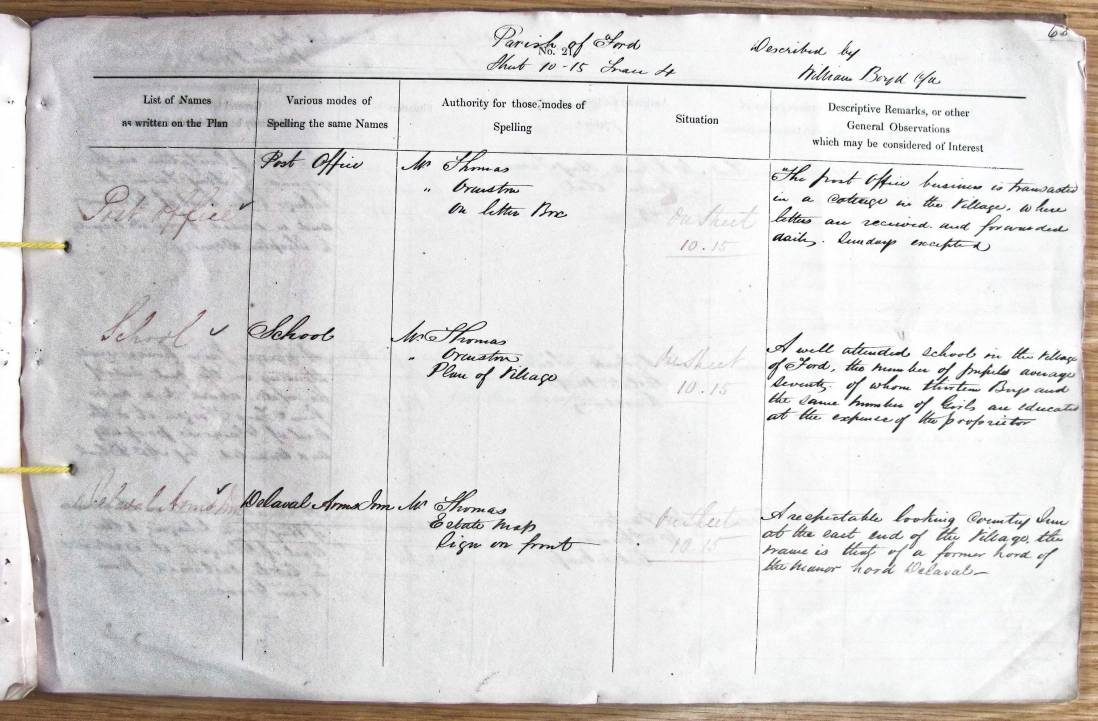 65
Parish of Ford
No. 21
Sheet 10-15 Trace 4
Described by
William Boyd c/a
List of Names
as written on the Plan
Various modes of
Spelling the same Names
Authority for those modes of
Spelling
Situation
Descriptive Remarks, or other
General Observations
which may be considered of Interest
Post Office
Post Office
Mr Thomas
" Ormston
On letter Box
On Sheet
10.15
The post Office business is transacted
in a cottage in the Village, where
letters are received and forwarded
daily. Sundays excepted
School
School
Mr Thomas
" Ormston
Plan of Village
On Sheet
10.15
A well attended school in the Village
of Ford, the number of pupils average
seventy, of whom thirteen Boys and
the same number of Girls are educated
at the expense of the proprietor
Delaval Arms Inn
Delaval Arms Inn
Mr Thomas
Estate Map
Sign on front
On Sheet
10.15
A respectable looking Country Inn
at the east end of the Village, the
name is that of a former Lord of
the Manor Lord Delaval